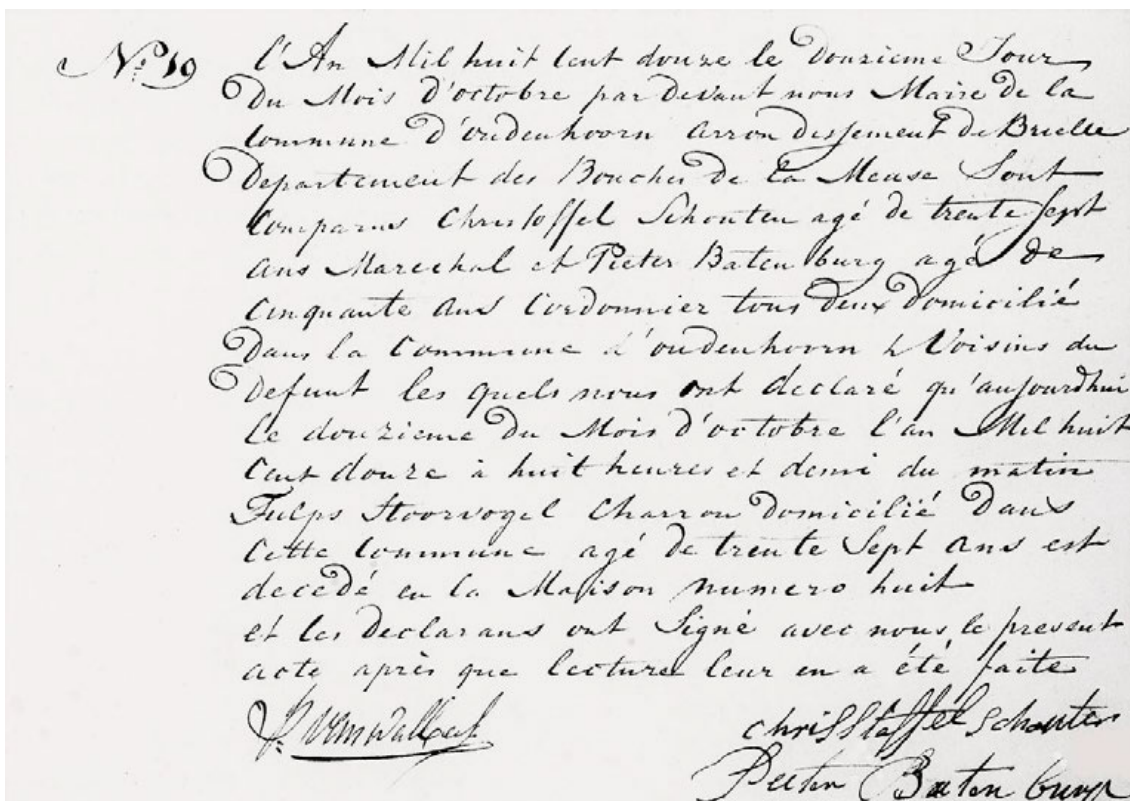 N.º 19
l'An Mil huit Cent douze le Douzieme Jour
Du Mois D'octobre par Devant nous Maire de la
Commune D'oudenhoorn arrondissement De Brielle
Departement des Bouches De la Meuse Sont
Comparus Christoffel Schouten agé de trente Sept
ans Marechal et Pieter Batenburg agé De
Cinquante ans Cordonnier tous Deux Domicilié
Dans la Commune d'oudenhoorn & Voisins du
Defunt les quels nous ont declaré qu'aujourdhui
Le douzieme Du Mois D'octobre l'an Mil huit
Cent douze à huit heures et demi du matin
Fulps Stoorvogel Charron Domicilié Dans
Cette Commune agé de trente Sept ans est
decedé en la Maison numero huit
et les Declarans ont Signé avec nous le present
acte après que lecture leur en a été faite
chrisStaffel schouten
Peeter Baten burg